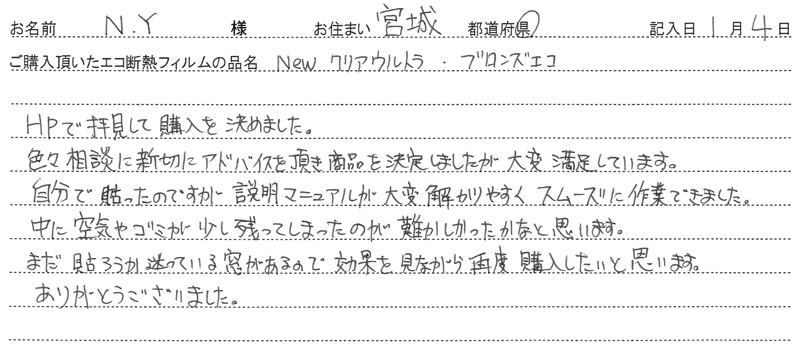 お名前 N.Y 様 お住まい 宮城 都道府県 記入日 1月4日
ご購入頂いたエコ断熱フィルムの品名 New クリアウルトラ ・ ブロンズエコ
HPで拝見して購入を決めました。
色々相談に新切にアドバイスを頂き商品を決定しましたが大変満足しています。
自分で貼ったのですが説明マニュアルが大変解かりやすくスムーズに作業できました。
中に空気やゴミが少し残ってしまったのが難かしかったかなと思います。
まだ貼ろうか迷っている窓があるので効果を見ながら再度購入したいと思います。
ありがとうございました。